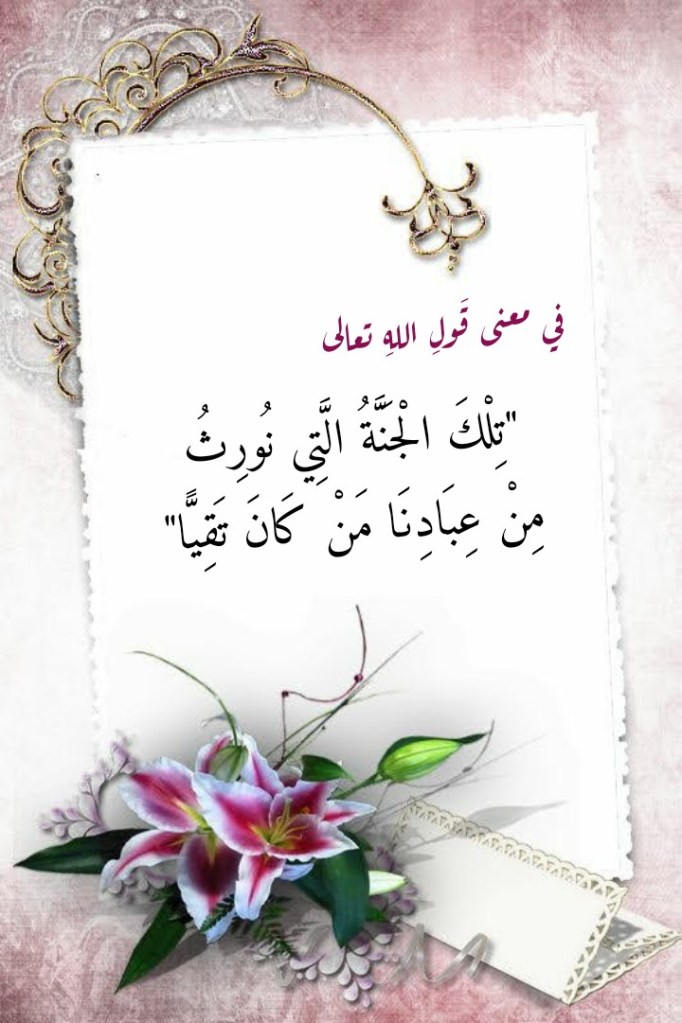 في معنى قَولِ اللهِ تعالى
"تِلْكَ الْجَنَّةُ الَّتِي نُورِثُ
مِنْ عِبَادِنَا مَنْ كَانَ تَقِيًّا"